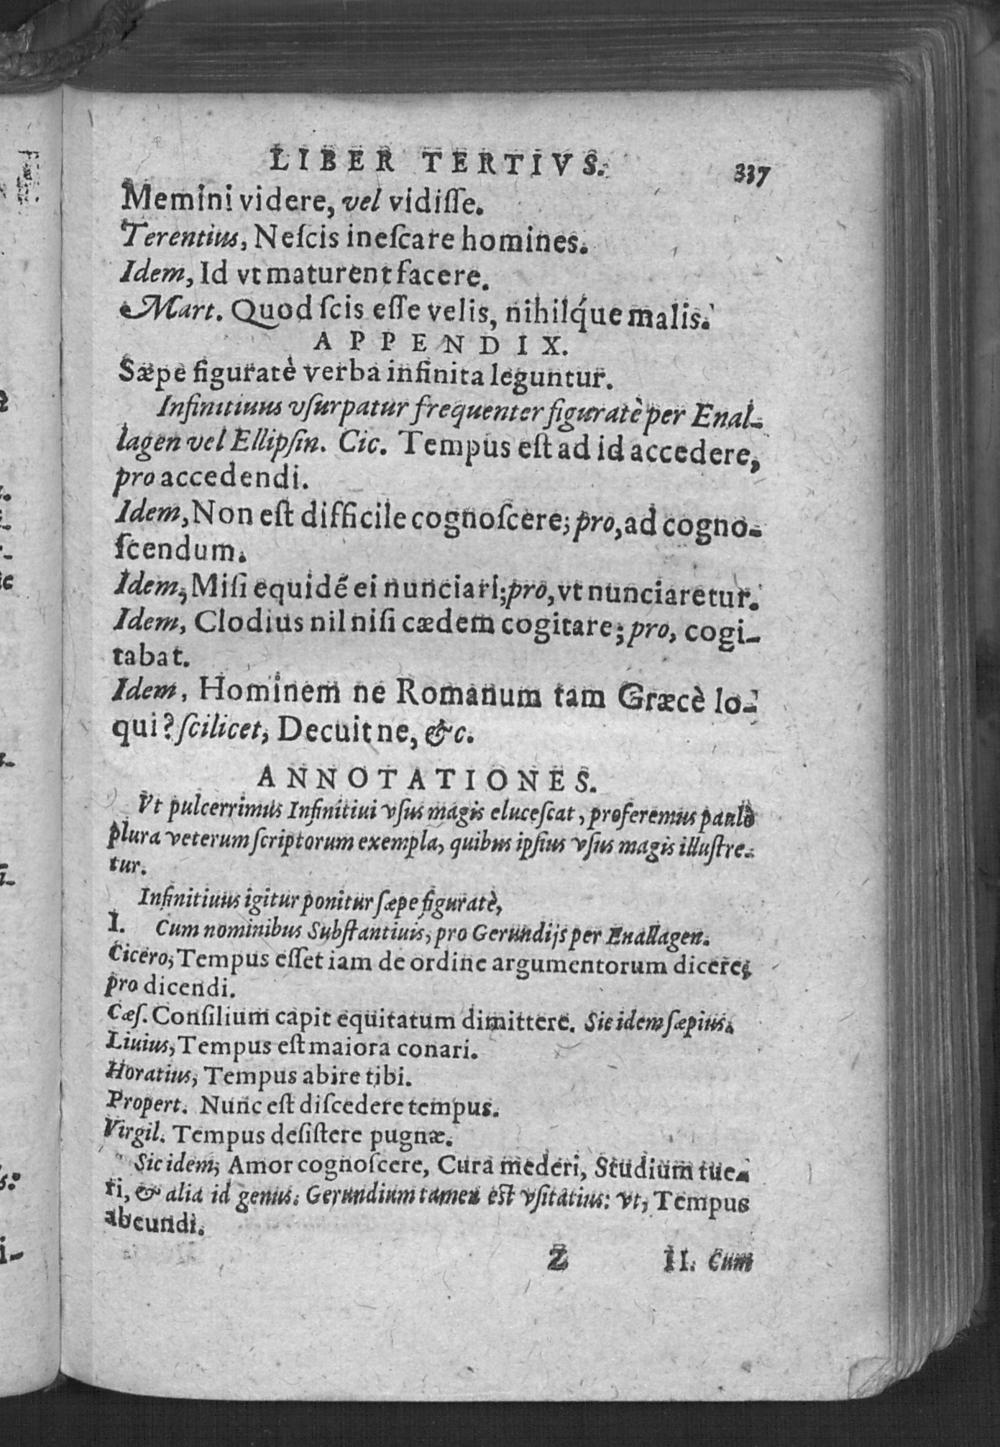 LIBER TERTIVS. 337
Memini videre, vel vidiſſe.
Terentius, Neſcis ineſcare homines.
Idem, Id vt maturent facere.
Mart. Quod ſcis eſſe velis, nihilq́ue malis.
APPENDIX.
Sæpe figuratè verba infinita leguntur.
Infinitiuus vſurpatur frequenter figuratè per Enal-
lagen vel Ellipſin. Cic. Tempus eſt ad id accedere,
pro accedendi.
Idem, Non eſt difficile cognoſcere; pro, ad cogno-
ſcendum.
Idem, Miſi equidẽ ei nunciari; pro, vt nunciaretur.
Idem, Clodius nil niſi cædem cogitare; pro, cogi-
tabat.
Idem, Hominem ne Romanum tam Græcè lo-
qui? ſcilicet, Decuitne, &c.
ANNOTATIONES.
Vt pulcerrimus Infinitiui vſus magis eluceſcat, proferemus paulò
plura veterum ſcriptorum exempla, quibus ipſius vſus magis illuſtre-
tur.
Infinitiuus igitur ponitur ſæpe figuratè,
I. Cum nominibus Subſtantiuis, pro Gerundijs per Enallagen.
Cicero, Tempus eſſet iam de ordine argumentorum dicere;
pro dicendi.
Cæſ. Conſilium capit equitatum dimittere. Sic idem ſæpius.
Liuius, Tempus eſt maiora conari.
Horatius, Tempus abire tibi.
Propert. Nunc eſt diſcedere tempus.
Virgil. Tempus deſiſtere pugnæ.
Sic idem, Amor cognoſcere, Cura mederi, Studium tue-
ri, & alia id genus. Gerundium tamen est vſitatius: vt, Tempus
abeundi.
Z II. Cum